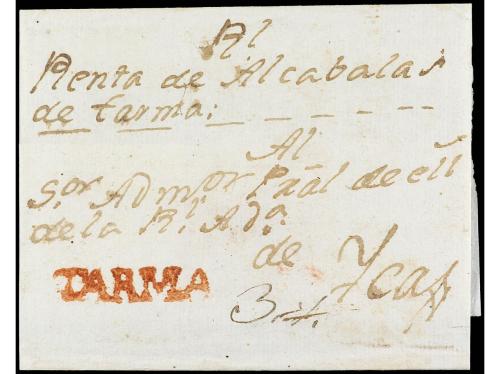 Rl
Renta de Alcabalas
de tarma:
Al
S.or Adm.or Pral de ell
de la Rl. Ad.a
de Yca
TARMA